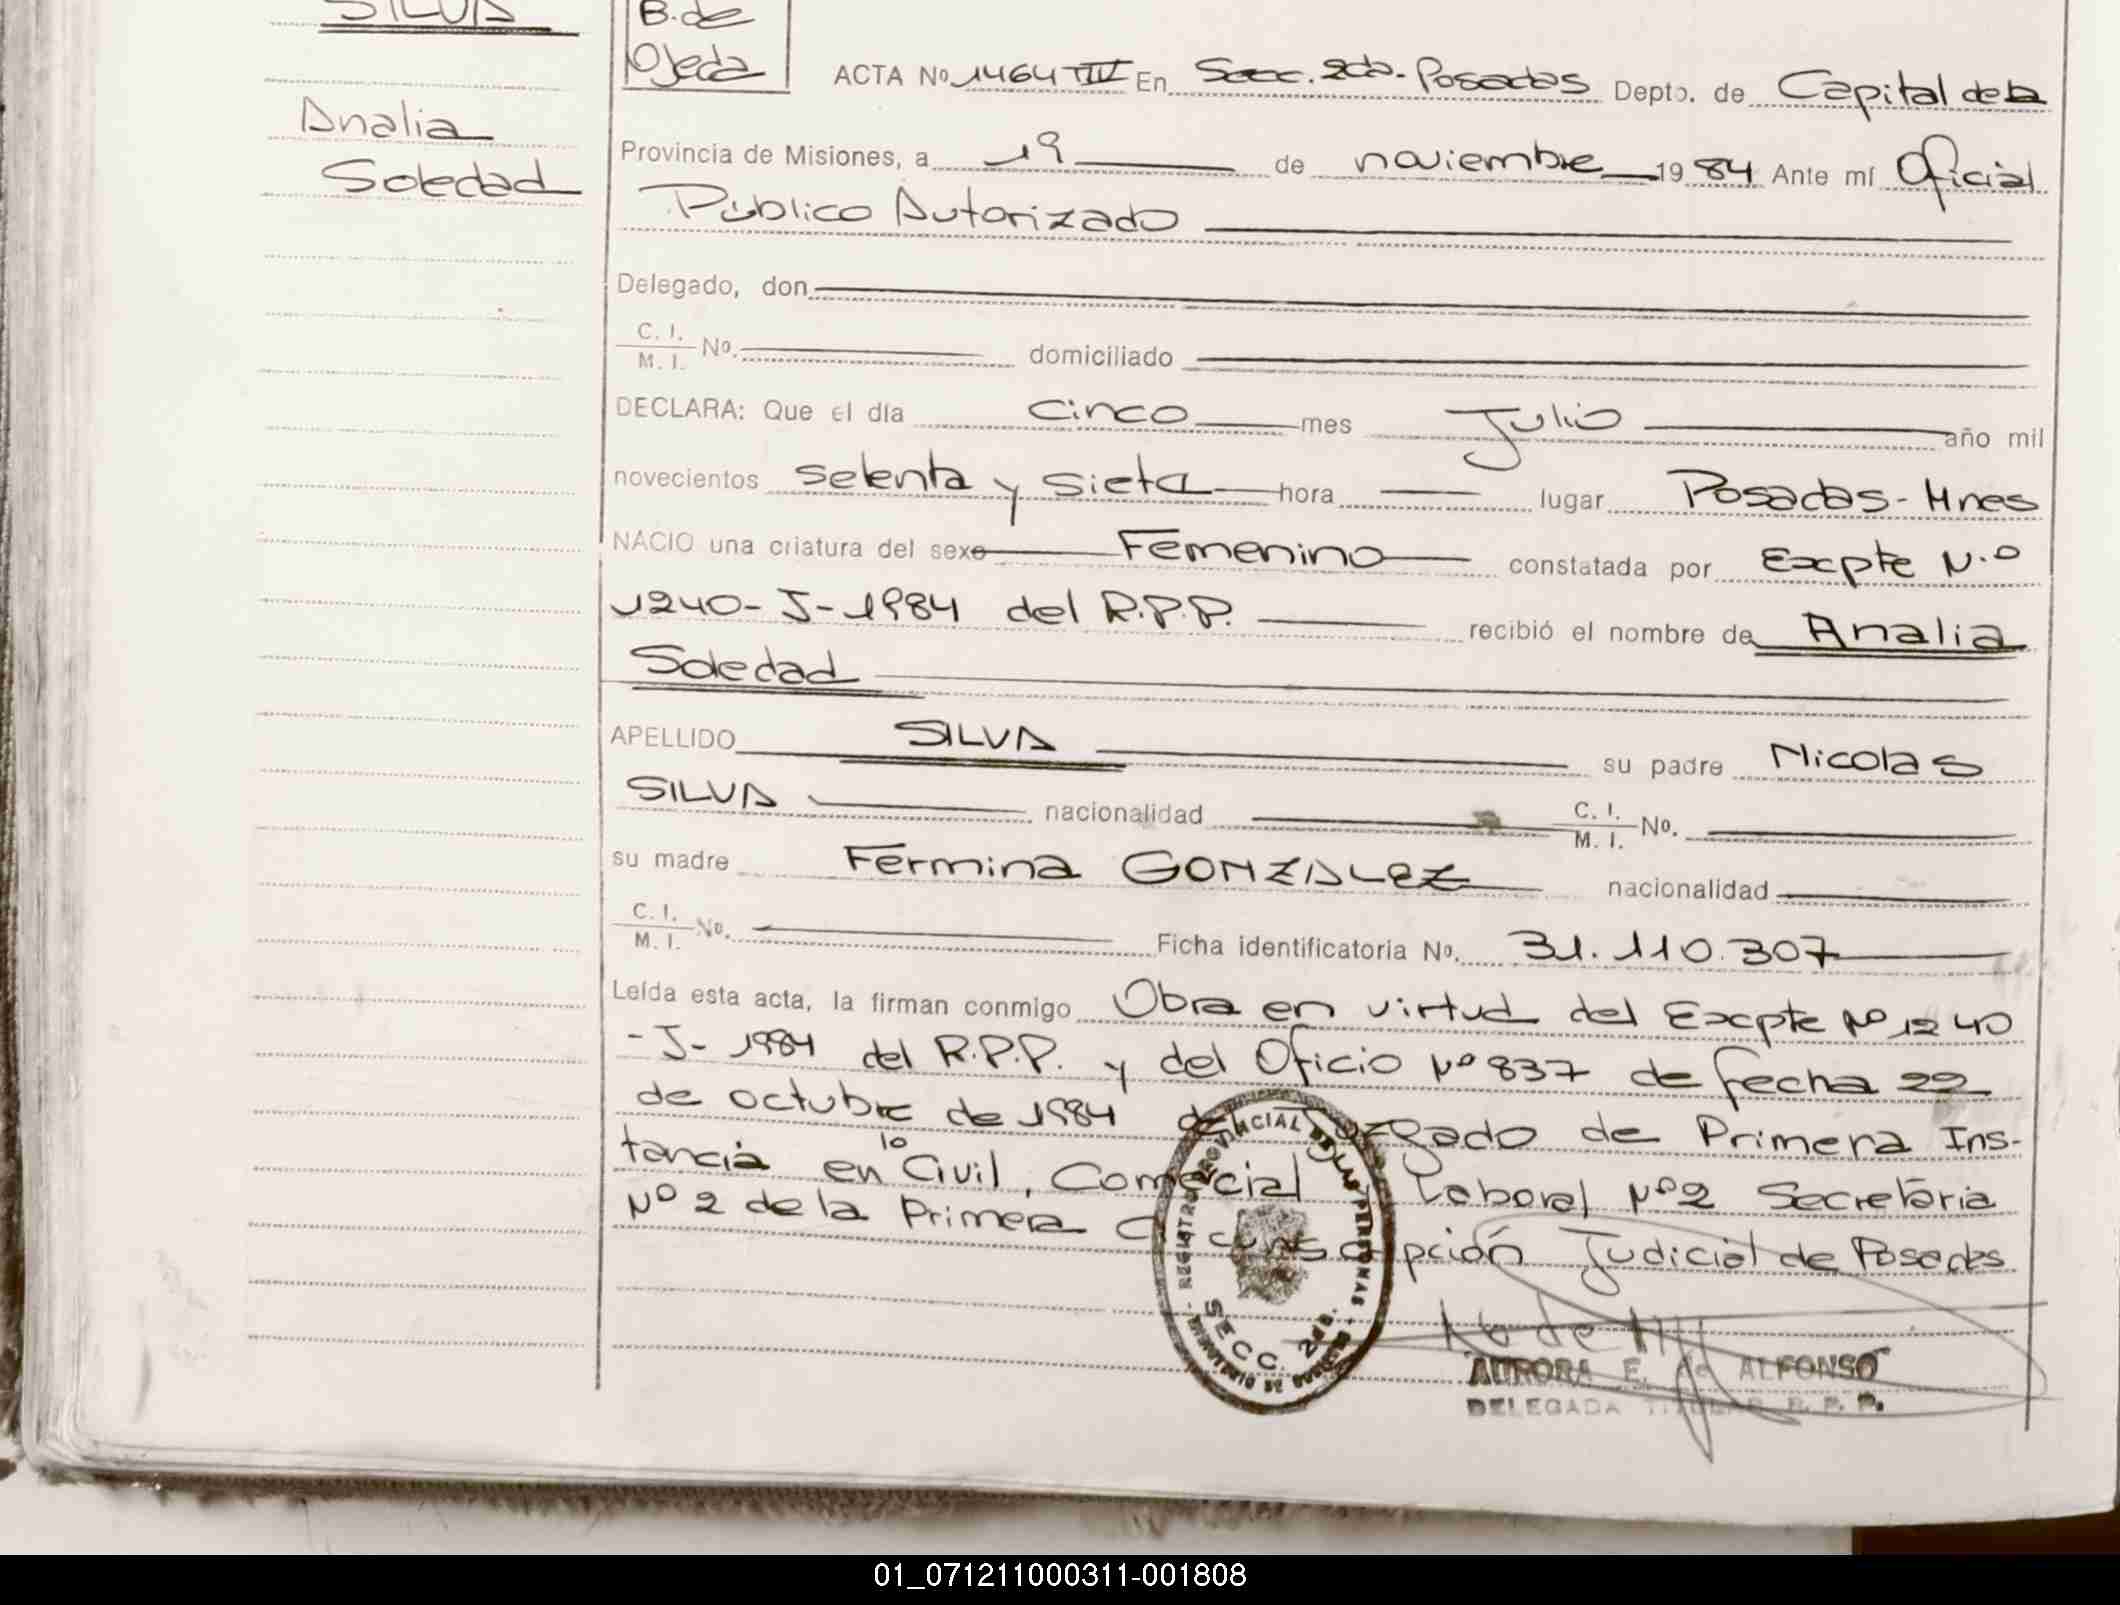 SILVA
Analia
Soledad
B. de
Ojeda
ACTA Nº 1464 TIV En Secc. 2da. Posadas Depto. de Capital de la
Provincia de Misiones, a 19 de noviembre 1984 Ante mí Oficial
Público Autorizado
Delegado, don
C. I.
M. I. Nº. domiciliado
DECLARA: Que el día cinco mes Julio año mil
novecientos setenta y siete hora lugar Posadas - Mnes
NACIO una criatura del sexo Femenino constatada por Excpte N.º
1240-J-1984 del R.P.P. recibió el nombre de Analia
Soledad
APELLIDO SILVA su padre Nicolas
SILVA nacionalidad C. I.
M. I. Nº.
su madre Fermina GONZALEZ nacionalidad
C. I.
M. I. Nº. Ficha identificatoria Nº. 31.110.307
Leída esta acta, la firman conmigo Obra en virtud del Excpte Nº 1240
-J-1984 del R.P.P. y del Oficio Nº 837 de fecha 22
de octubre de 1984 del Juzgado de Primera Ins-
tancia en lo Civil, Comercial y Laboral Nº 2 Secretaria
Nº 2 de la Primera Circunscripción Judicial de Posadas
REGISTRO PROVINCIAL DE LAS PERSONAS
SECC. 2da.
AURORA E. de ALFONSO
DELEGADA TITULAR R. P. P.
01_071211000311-001808